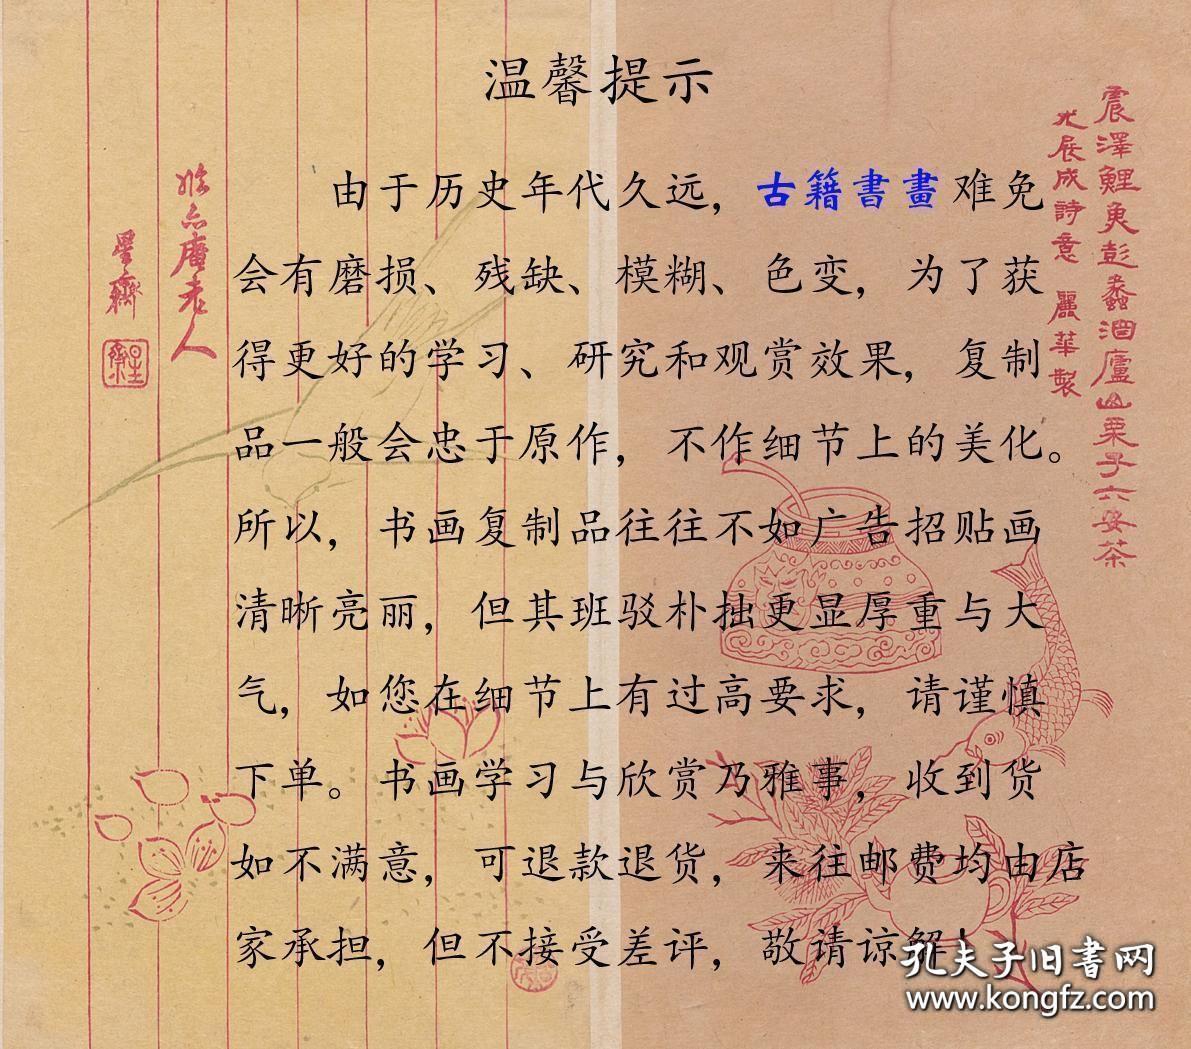 温馨提示
由于历史年代久远，古籍書畫难免
会有磨损、残缺、模糊、色变，为了获
得更好的学习、研究和观赏效果，复制
品一般会忠于原作，不作细节上的美化。
所以，书画复制品往往不如广告招贴画
清晰亮丽，但其班驳朴拙更显厚重与大
气，如您在细节上有过高要求，请谨慎
下单。书画学习与欣赏乃雅事，收到货
如不满意，可退款退货，来往邮费均由店
家承担，但不接受差评，敬请谅解！
震澤鯉魚彭蠡酒廬山栗子六安茶
尤展成詩意 麗華製
老人
星齋
孔夫子旧书网
www.kongfz.com